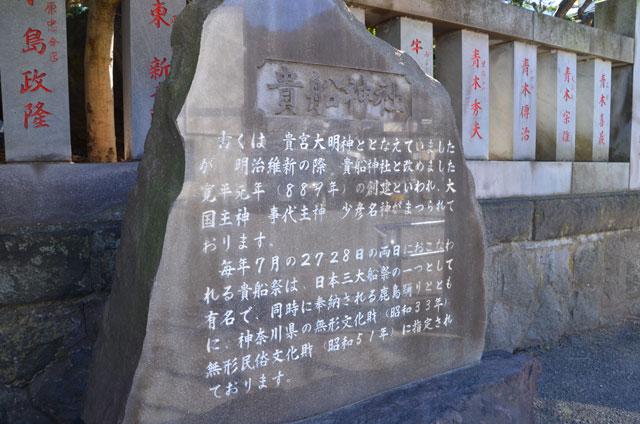 貴船神社
古くは 貴宮大明神ととなえていました
が 明治維新の際 貴船神社と改めました
寛平元年（889年）の創建といわれ、大
国主神 事代主神 少彦名神がまつられて
おります。
毎年7月の2728日の両日におこなわ
れる貴船祭は、日本三大船祭の一つとして
有名で、同時に奉納される鹿島踊りととも
に、神奈川県の無形文化財（昭和33年）
無形民俗文化財（昭和51年）に指定され
ております。
島政隆
東 新
青木秀夫
青木傳治
青木宗雄
青木喜長